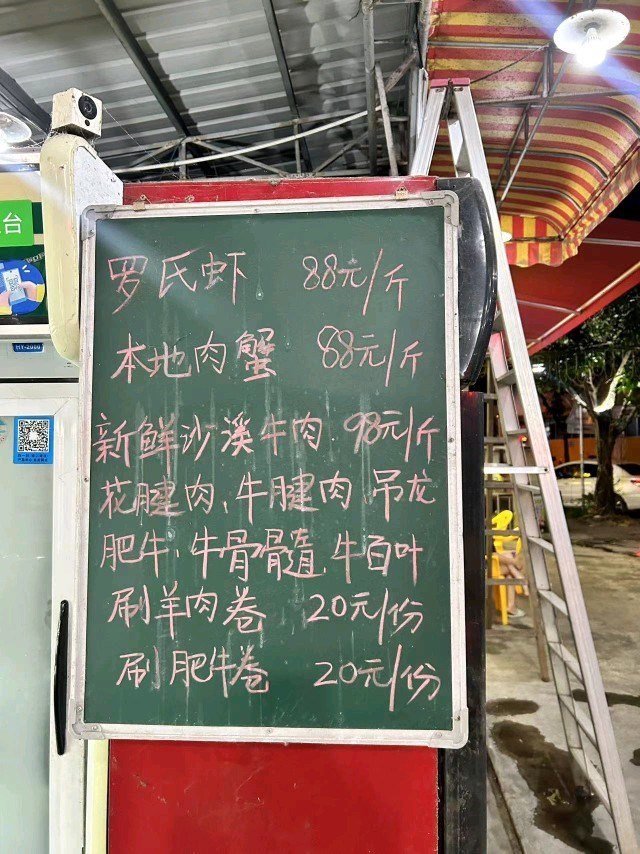 台
HY-2000
罗氏虾 88元/斤
本地肉蟹 88元/斤
新鲜沙溪牛肉 98元/斤
花腱肉、牛腱肉 吊龙
肥牛、牛骨髓 牛百叶
刷羊肉卷 20元/份
刷肥牛卷 20元/份